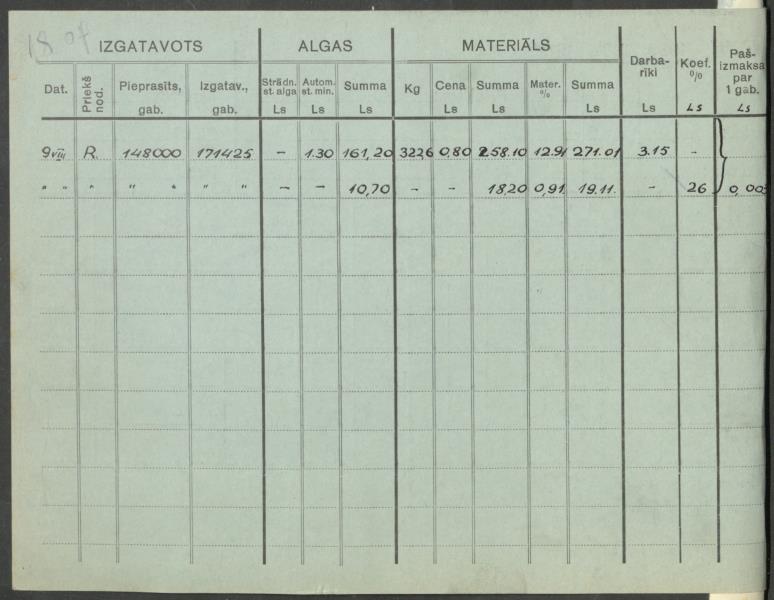 18 of
IZGATAVOTS ALGAS MATERIĀLS
Dat. Priekš nod. Pieprasīts, gab. Izgatav., gab. Strādn. st. alga Ls Autom. st. min. Ls Summa Ls Kg Cena Ls Summa Ls Mater. % Summa Ls Darba-rīki Ls Koef. % Ls Paš-izmaksa par 1 gab. Ls
9 VIII R. 148000 171425 - 1.30 161,20 322,6 0,80 258.10 12.91 271.01 3.15 -
" " " " " " " - - 10,70 - - 18,20 0,91 19.11. - 26 0,003